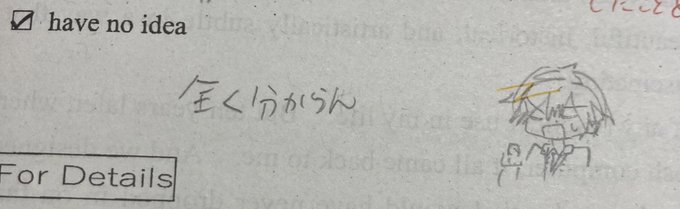 have no idea
全く分からん
For Details